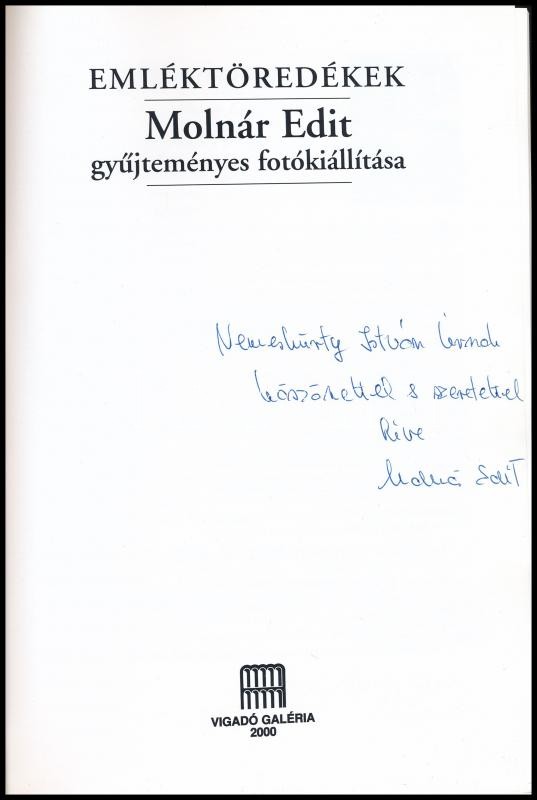 EMLÉKTÖREDÉKEK
Molnár Edit
gyűjteményes fotókiállítása
Nemeskürty István Úrnak
köszönettel s szeretettel
híve
Molnár Edit
VIGADÓ GALÉRIA
2000